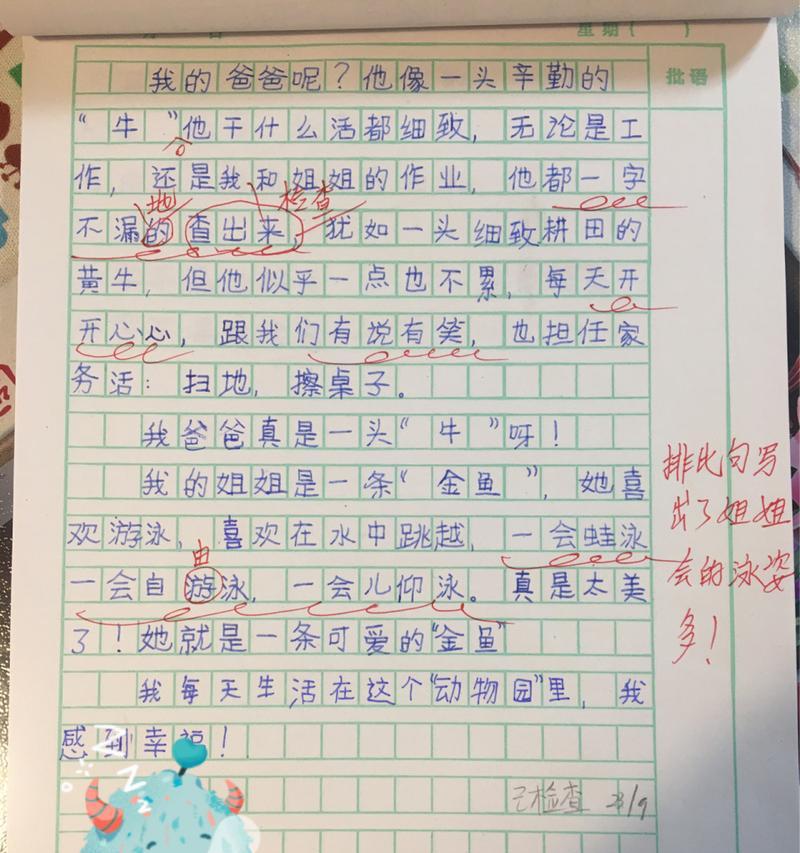 星期(    )
批语
我的爸爸呢？他像一头辛勤的
“牛”他干什么活都细致，无沦是工
作，还是我和姐姐的作业，他都一字
地
检查
不漏的查出来，犹如一头细致耕田的
黄牛，但他似乎一点也不累，每天开
开心心，跟我们有说有笑，也担任家
务活：扫地，擦桌子。
我爸爸真是一头“牛”呀！
我的姐姐是一条“金鱼”，她喜
欢游泳，喜欢在水中跳越，一会蛙泳
由
一会自游泳，一会儿仰泳。真是太美
了！她就是一条可爱的“金鱼”
我每天生活在这个“动物园”里，我
感到幸福！
排比句写
出了姐姐
会的泳姿
多！
已检查 23/9